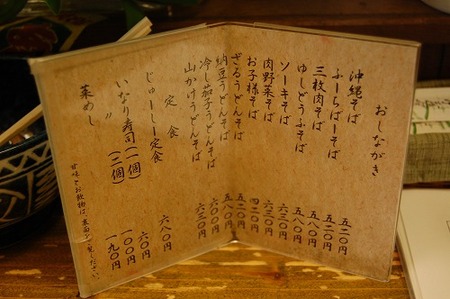 おしながき
沖縄そば 五二〇円
ふーちばーそば 五二〇円
三枚肉そば 五八〇円
ゆしどうふそば 五八〇円
ソーキそば 六三〇円
肉野菜そば 六三〇円
お子様そば 四二〇円
ざるうどんそば 五二〇円
納豆うどんそば 五八〇円
冷し茄子うどんそば 六〇〇円
山かけうどんそば 六三〇円
定食
じゅーしー定食 六八〇円
いなり寿司(一個) 六〇円
〃 (二個) 一〇〇円
菜めし 一九〇円
甘味・お飲物は、裏面をご覧ください。